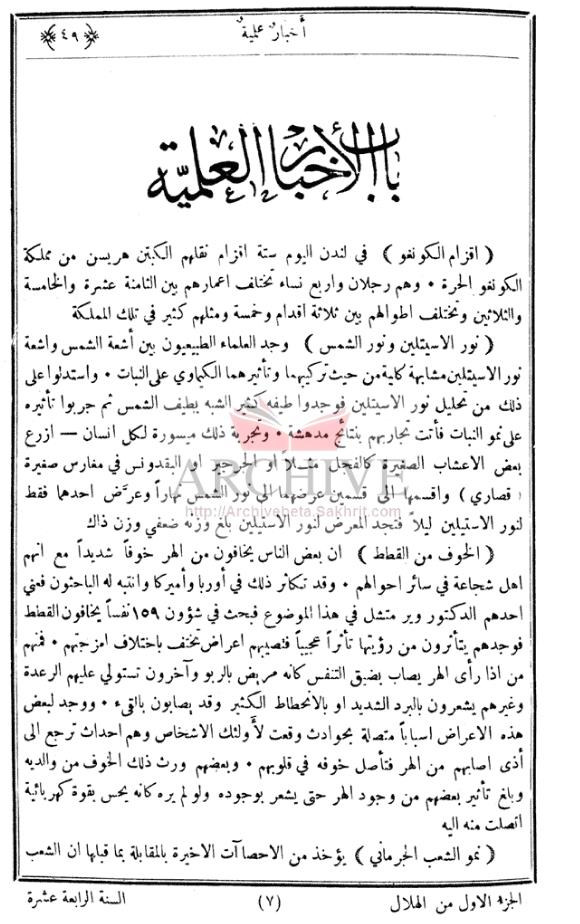 أخبار علمية
﴿ ٤٩ ﴾
باب الأخبار العلمية
( اقزام الكونغو ) في لندن اليوم ستة اقزام نقلهم الكبتن هريسن من مملكة
الكونغو الحرة • وهم رجلان واربع نساء تختلف اعمارهم بين الثامنة عشرة والخامسة
والثلاثين وتختلف اطوالهم بين ثلاثة اقدام وخمسة ومثلهم كثير في تلك المملكة
( نور الاسيتلين ونور الشمس ) وجد العلماء الطبيعيون بين أشعة الشمس واشعة
نور الاسيتلين مشابهة كلية من حيث تركيبهما وتأثيرهما الكيماوي على النبات • واستدلوا على
ذلك من تحليل نور الاسيتلين فوجدوا طيفه كثير الشبه بطيف الشمس ثم جربوا تأثيره
على نمو النبات فأتت تجاربهم بنتائج مدهشة • وتجربة ذلك ميسورة لكل انسان — ازرع
بعض الاعشاب الصغيرة كالفجل مثلاً او الجرجير او البقدونس في مغارس صغيرة
( قصاري ) واقسمها الى قسمين عرضهما الى نور الشمس نهاراً وعرّض احدهما فقط
لنور الاستيلين ليلاً فتجد المعرض لنور الاستيلين بلغ وزنه ضعفي وزن ذاك
ARCHIVE
http://Archivebeta.Sakhrit.com
( الخوف من القطط ) ان بعض الناس يخافون من الهر خوفاً شديداً مع انهم
اهل شجاعة في سائر احوالهم • وقد تكاثر ذلك في أوربا وأميركا وانتبه له الباحثون فعني
احدهم الدكتور وير متشل في هذا الموضوع فبحث في شؤون ١٥٩ نفساً يخافون القطط
فوجدهم يتأثرون من رؤيتها تأثراً عجيباً فتصيبهم اعراض تختف باختلاف امزجتهم • فمنهم
من اذا رأى الهر يصاب بضيق التنفس كانه مريض بالربو وآخرون تستولي عليهم الرعدة
وغيرهم يشعرون بالبرد الشديد او بالانحطاط الكثير وقد يصابون بالقيء • ووجد لبعض
هذه الاعراض اسباباً متصلة بحوادث وقعت لأولئك الاشخاص وهم احداث ترجع الى
أذى اصابهم من الهر فتأصل خوفه في قلوبهم • وبعضهم ورث ذلك الخوف من والديه
وبلغ تأثير بعضهم من وجود الهر حتى يشعر بوجوده ولو لم يره كانه يحس بقوة كهربائية
اتصلت منه اليه
( نمو الشعب الجرماني ) يؤخذ من الاحصاآت الاخيرة بالمقابلة بما قبلها ان الشعب
الجزء الاول من الهلال
(٧)
السنة الرابعة عشرة